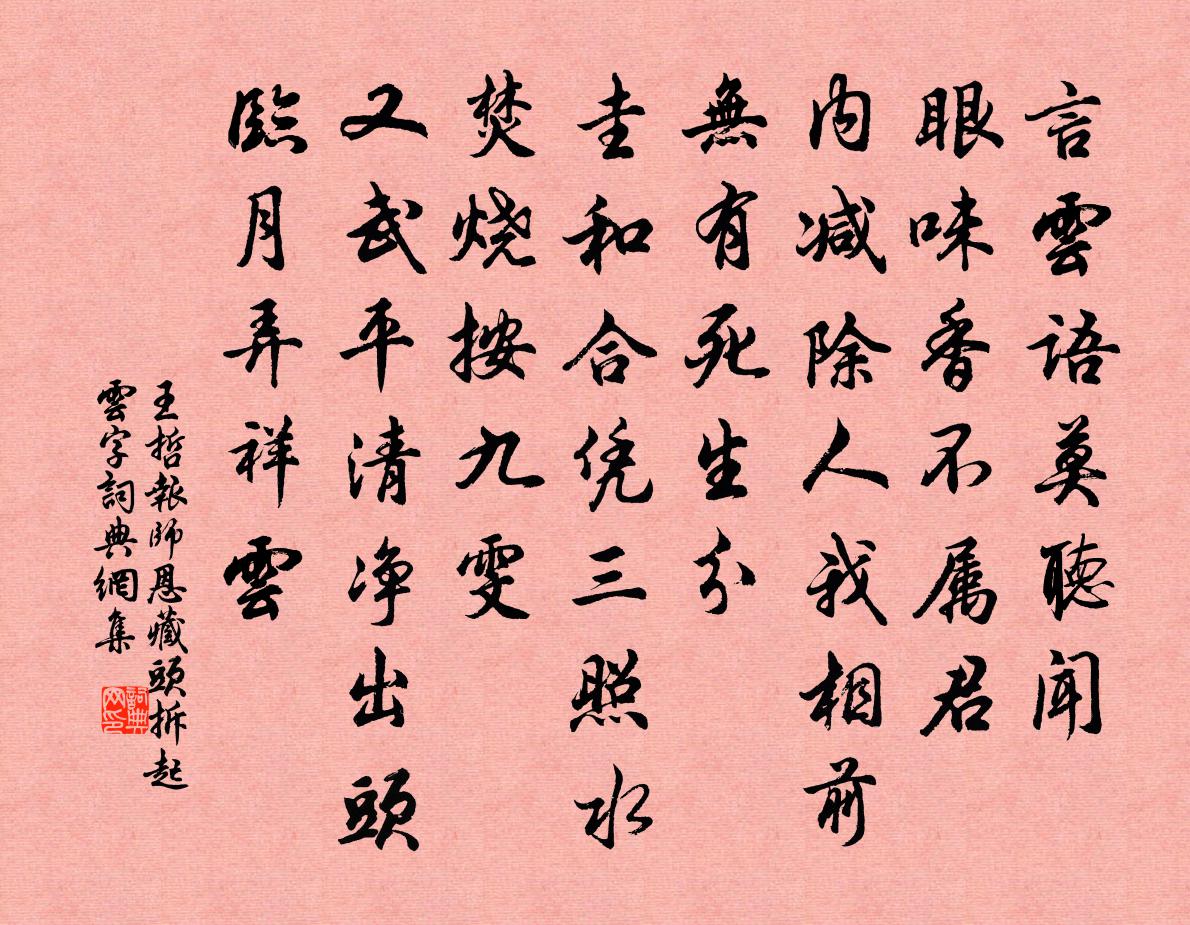 言雲語莫聽聞
眼味香不属君
内减除人我相前
無有死生分
圭和合凭三照水
焚烧按九雯
又武平清净出頭
臨月弄祥雲
王哲報師恩藏頭拆起
雲字詞典網集
詞典网印